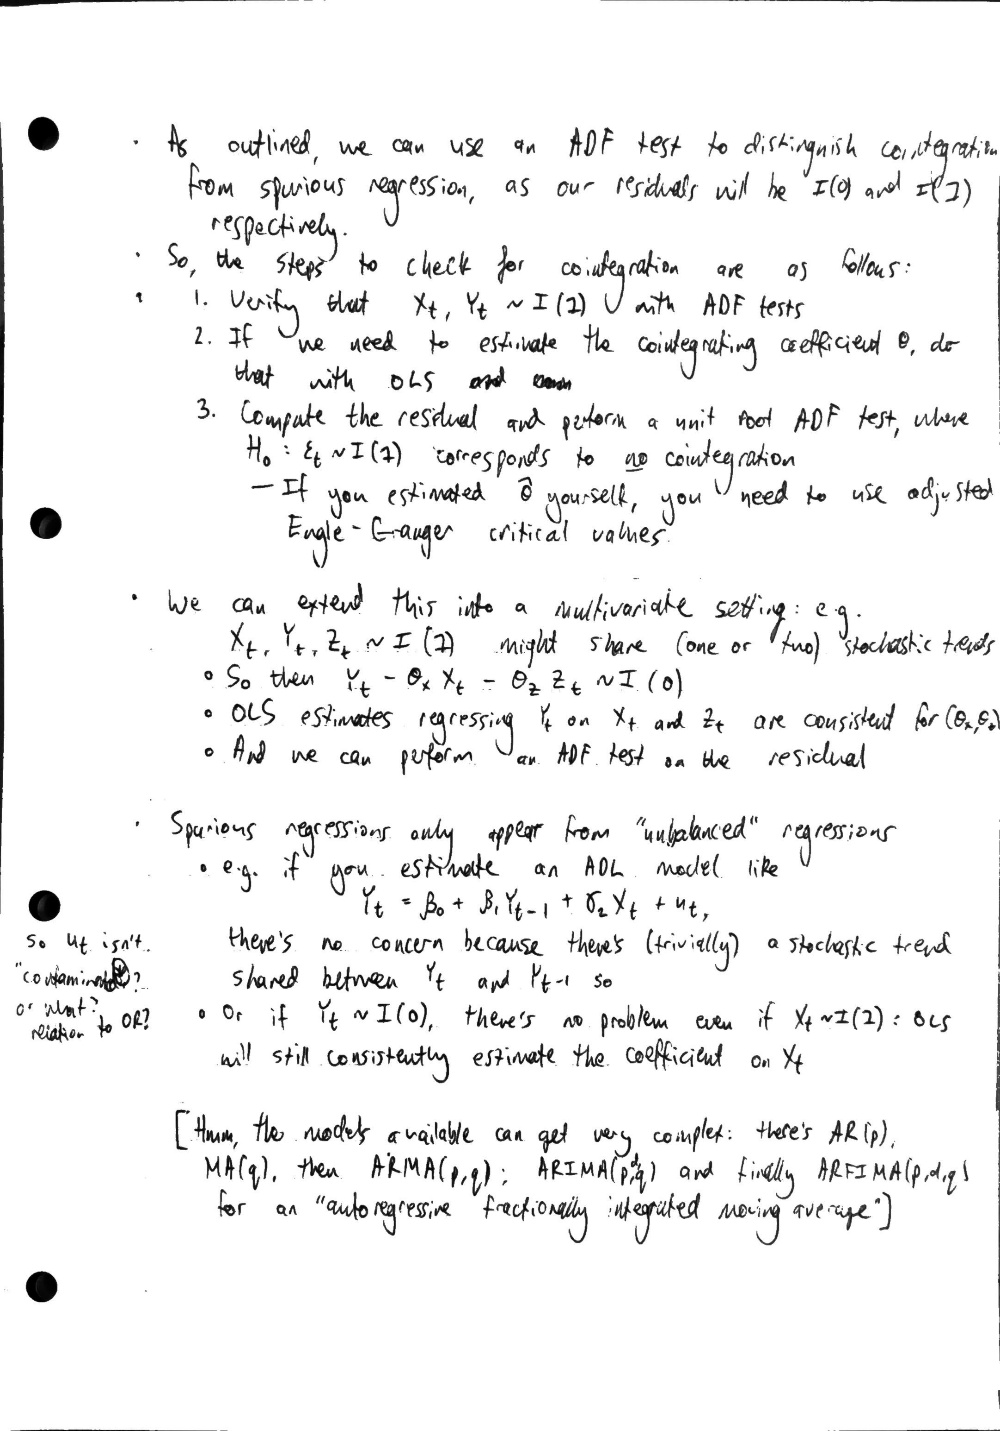 · As outlined, we can use an ADF test to distinguish cointegration
from spurious regression, as our residuals will be I(0) and I(1)
respectively.
· So, the steps to check for cointegration are as follows:
· 1. Verify that Xt, Yt ~ I(1) with ADF tests
2. If we need to estimate the cointegrating coefficient θ, do
that with OLS
3. Compute the residual and perform a unit root ADF test, where
H₀ : εt ~ I(1) corresponds to no cointegration
— If you estimated θ̂ yourself, you need to use adjusted
Engle-Granger critical values.
· We can extend this into a multivariate setting: e.g.
Xt, Yt, Zt ~ I(1) might share (one or two) stochastic trends
∘ So then Yt - θx Xt - θz Zt ~ I(0)
∘ OLS estimates regressing Yt on Xt and Zt are consistent for (θx, θz)
∘ And we can perform an ADF test on the residual
· Spurious regressions only appear from "unbalanced" regressions
∘ e.g. if you estimate an ADL model like
Yt = β₀ + β₁Yt-1 + γ₂Xt + ut,
there's no concern because there's (trivially) a stochastic trend
shared between Yt and Yt-1 so
so ut isn't
"contaminated"?
or what?
relation to OR?
∘ Or if Yt ~ I(0), there's no problem even if Xt ~ I(1) : OLS
will still consistently estimate the coefficient on Xt
[Hmm, the models available can get very complex: there's AR(p),
MA(q), then ARMA(p,q); ARIMA(p,d,q) and finally ARFIMA(p,d,q)
for an "autoregressive fractionally integrated moving average"]